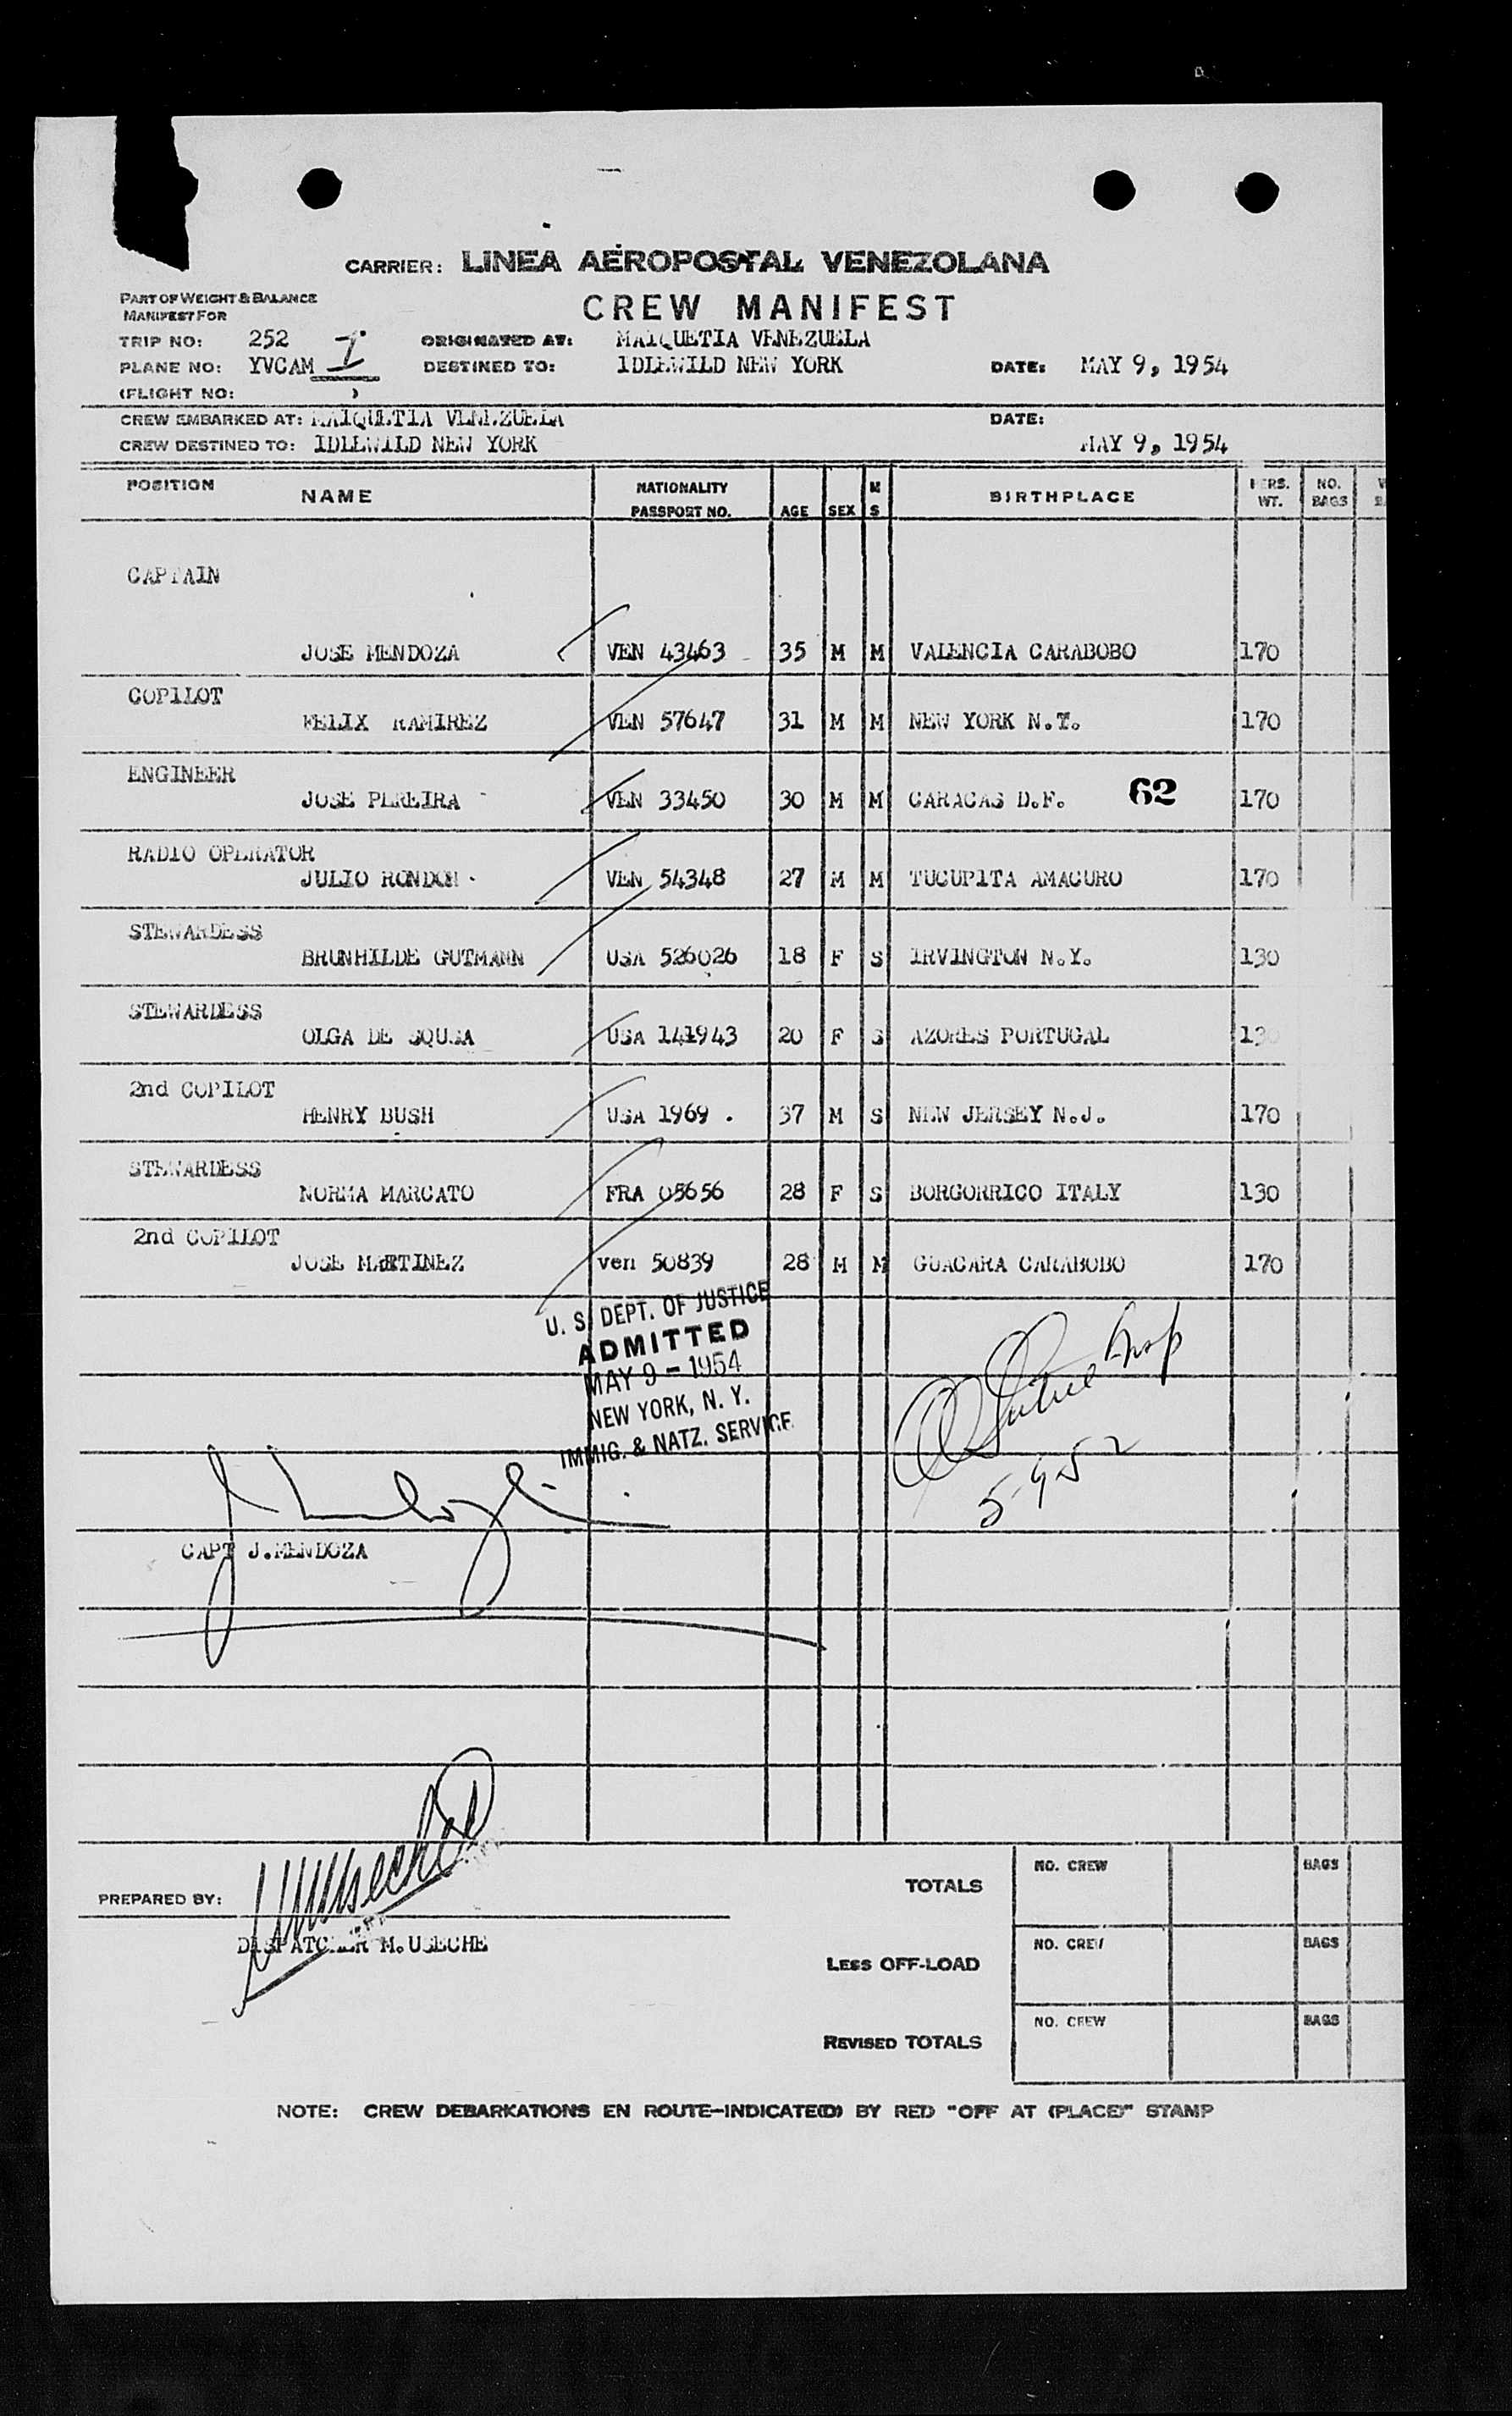 CARRIER: LINEA AEROPOSTAL VENEZOLANA
PART OF WEIGHT & BALANCE
MANIFEST FOR
CREW MANIFEST
TRIP NO: 252 ORIGINATED AT: MAIQUETIA VENEZUELA
PLANE NO: YVCAM DESTINED TO: IDLEWILD NEW YORK DATE: MAY 9, 1954
(FLIGHT NO: )
CREW EMBARKED AT: MAIQUETIA VENEZUELA DATE:
CREW DESTINED TO: IDLEWILD NEW YORK MAY 9, 1954
POSITION NAME NATIONALITY PASSPORT NO. AGE SEX M S BIRTHPLACE PERS. WT. NO. BAGS
CAPTAIN
JOSE MENDOZA VEN 43463 35 M M VALENCIA CARABOBO 170
COPILOT
FELIX RAMIREZ VEN 57647 31 M M NEW YORK N.Y. 170
ENGINEER
JOSE PEREIRA VEN 33450 30 M M CARACAS D.F. 62 170
RADIO OPERATOR
JULIO RONDON VEN 54348 27 M M TUCUPITA AMACURO 170
STEWARDESS
BRUNHILDE GUTMANN USA 526026 18 F S IRVINGTON N.Y. 130
STEWARDESS
OLGA DE SOUSA USA 141943 20 F S AZORES PORTUGAL 130
2nd COPILOT
HENRY BUSH USA 1969 . 37 M S NEW JERSEY N.J. 170
STEWARDESS
NORMA MARCATO FRA 05656 28 F S BORGORRICO ITALY 130
2nd COPILOT
JOSE MARTINEZ ven 50839 28 M M GUACARA CARABOBO 170
U. S. DEPT. OF JUSTICE
ADMITTED
MAY 9 - 1954
NEW YORK, N. Y.
IMMIG. & NATZ. SERVICE
Insp
5-9-52
CAPT J.MENDOZA
PREPARED BY:
DISPATCHER M.USECHE
TOTALS NO. CREW BAGS
LESS OFF-LOAD NO. CREW BAGS
REVISED TOTALS NO. CREW BAGS
NOTE: CREW DEBARKATIONS EN ROUTE-INDICATE(D) BY RED "OFF AT (PLACE)" STAMP